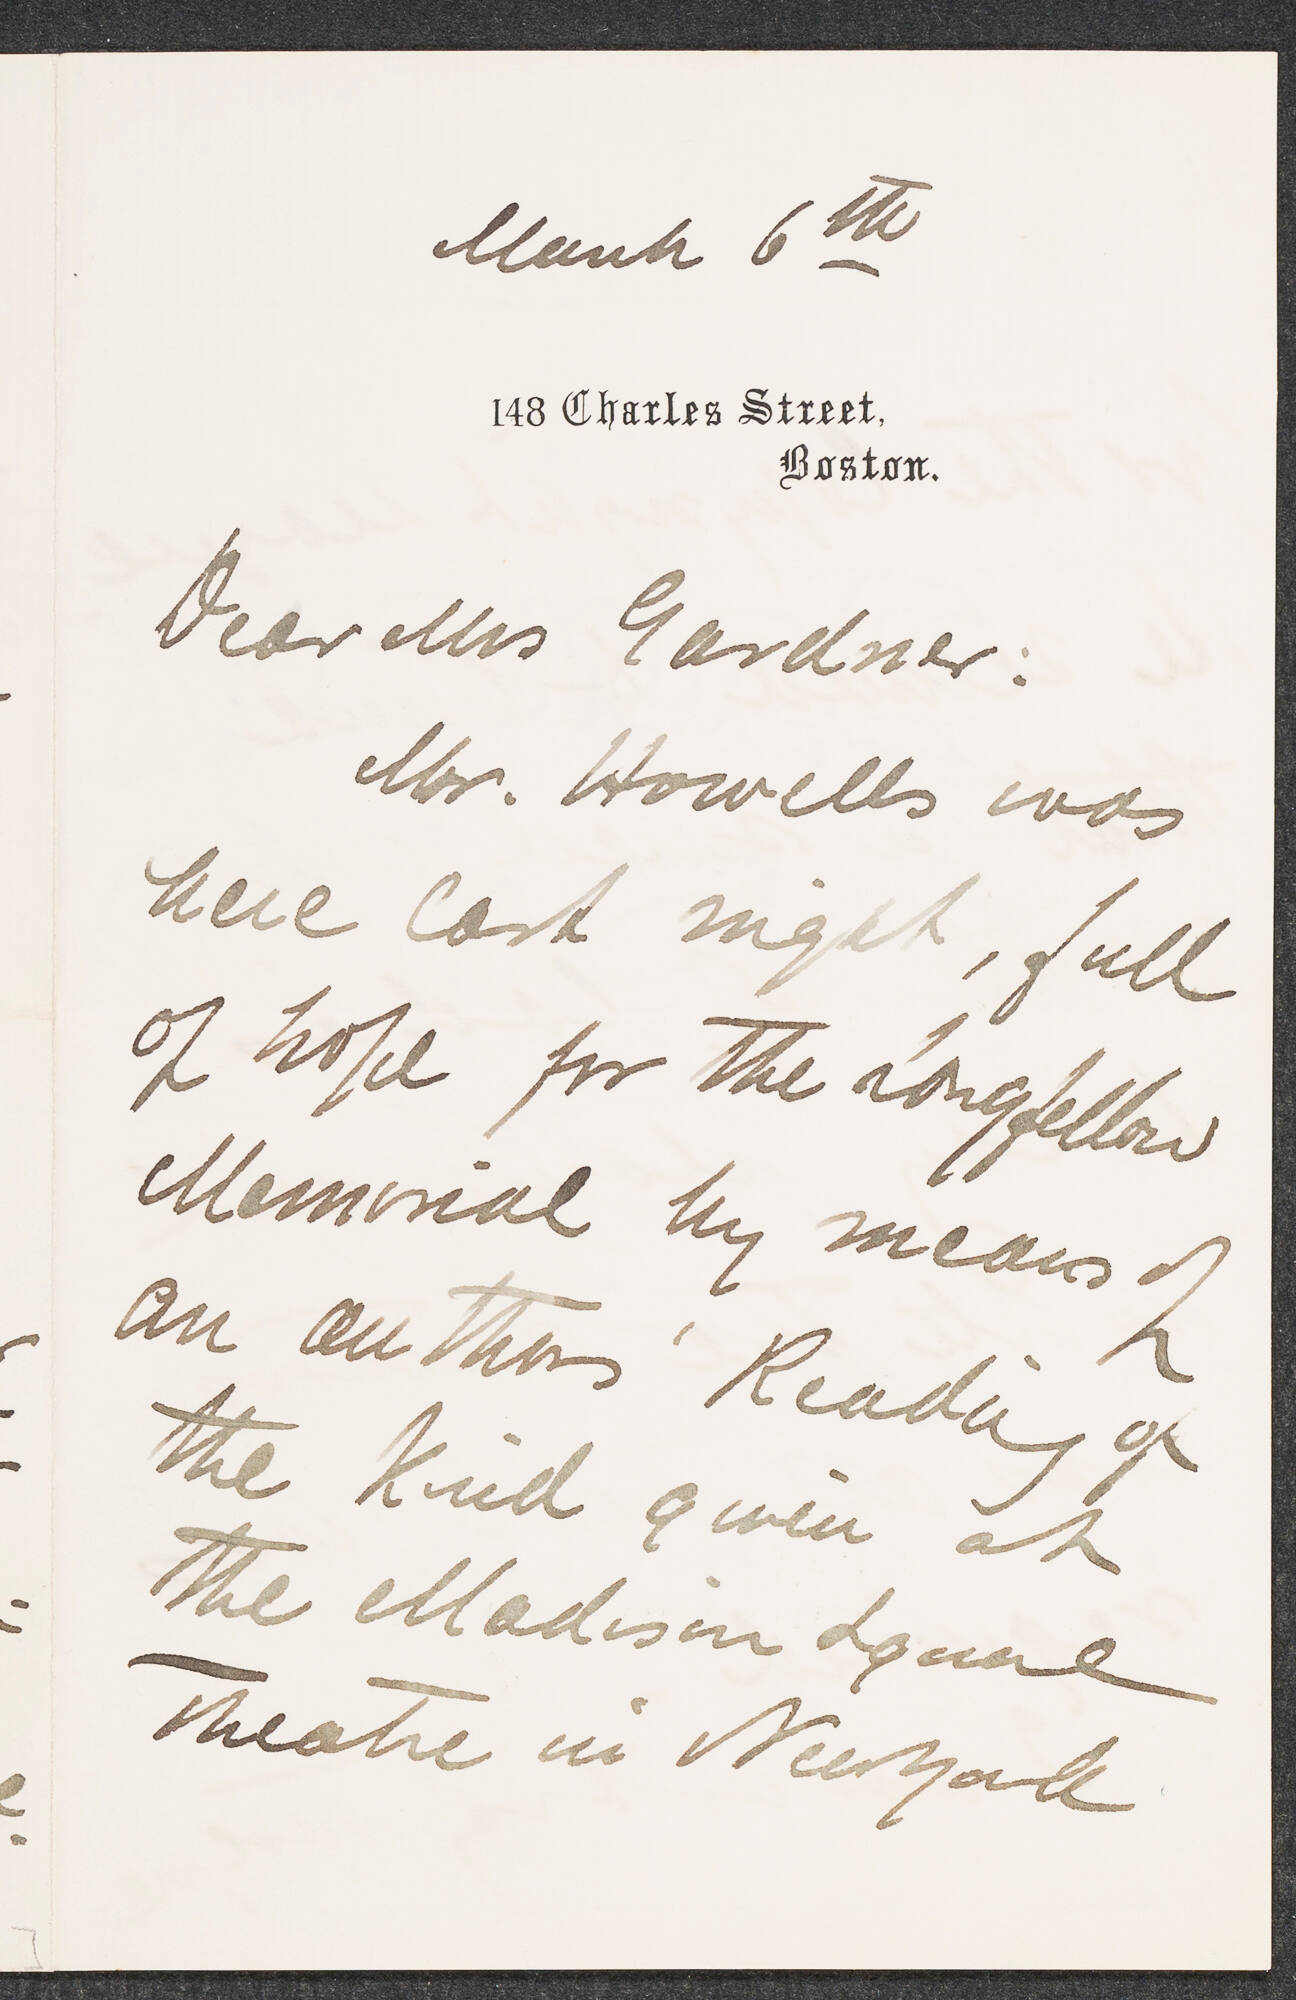 March 6th
148 Charles Street,
Boston.
Dear Mrs Gardner:
Mr. Howells was
here last night, full
of hope for the Longfellow
Memorial by means of
an authors' Reading of
the kind given at
the Madison Square
Theatre in New York